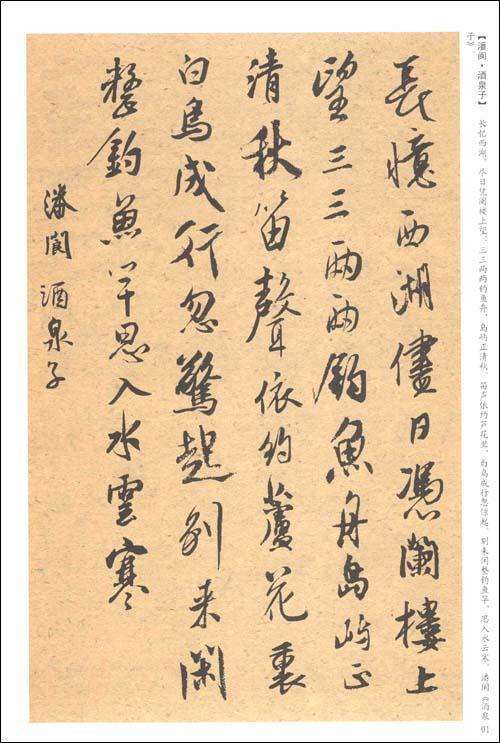 【潘阆·酒泉子】 长忆西湖，尽日凭阑楼上望，三三两两钓鱼舟，岛屿正清秋 笛声依约芦花里，白鸟成行忽惊起，别来闲整钓鱼竿，思入水云寒。 潘阆《酒泉
子》。
91
長憶西湖儘日憑闌樓上
望三三两两釣魚舟島屿正
清秋笛聲依约蘆花裏
白鳥成行忽驚起别来闲
整釣魚竿思入水雲寒
潘閬酒泉子